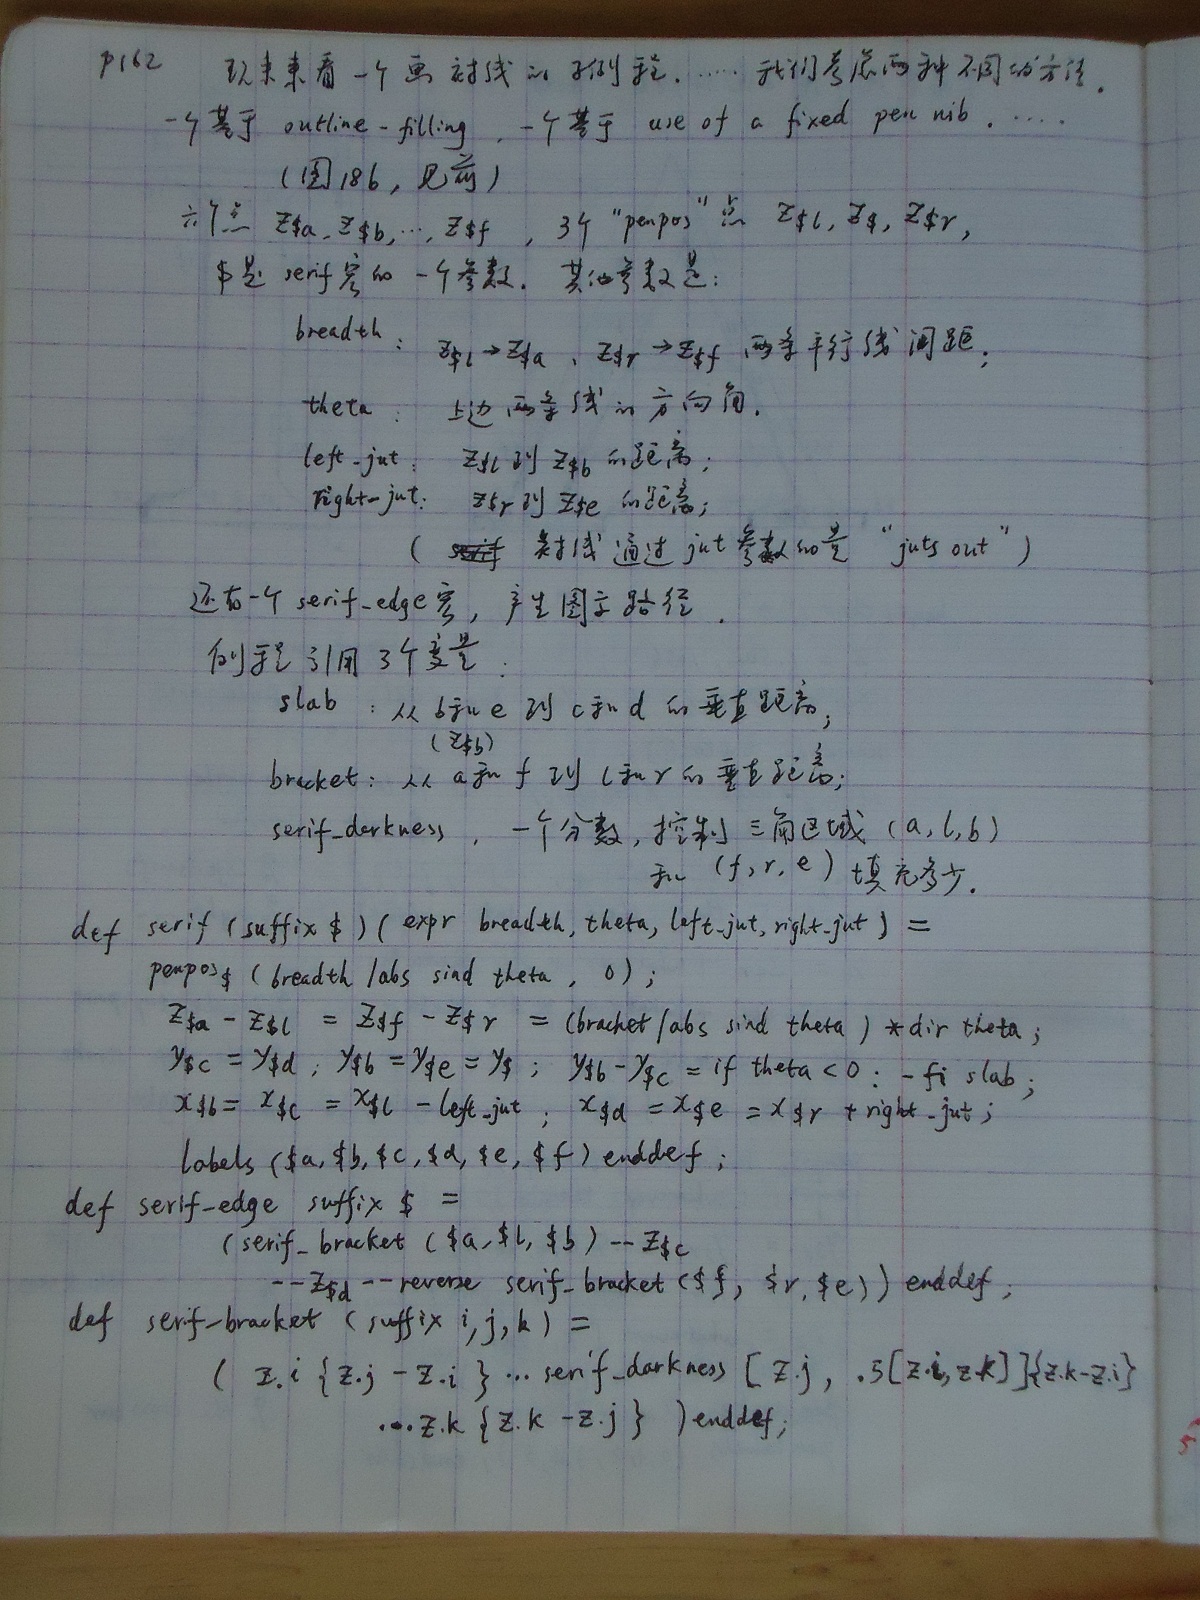 p162 现来来看一个画衬线的子例程. …… 我们考虑两种不同的方法.
一个基于 outline-filling, 一个基于 use of a fixed pen nib. ……
(图18b, 见前)
六个点 z$a, z$b, …, z$f , 3个 "penpos" 点 z$l, z$, z$r,
$是 serif宏的一个参数. 其他参数是:
breadth: z$l→z$a 、z$r→z$f 两条平行线间距;
theta: 上边两条线的方向角.
left_jut: z$l到z$b的距离;
right_jut: z$r到z$e的距离;
( 衬线通过jut参数的是 "juts out" )
还有一个 serif_edge宏, 产生图示路径.
例程引用3个变量:
slab : 从b和e到c和d的垂直距离;
(z$b)
bracket: 从a和f到l和r的垂直距离;
serif_darkness, 一个分数, 控制三角区域 (a, l, b)
和 (f, r, e) 填充多少.
def serif (suffix $) ( expr breadth, theta, left_jut, right_jut ) =
penpos$ (breadth /abs sind theta , 0);
z$a - z$l = z$f - z$r = (bracket/abs sind theta ) * dir theta;
y$c = y$d ; y$b = y$e = y$ ; y$b - y$c = if theta < 0 : - fi slab;
x$b = x$c = x$l - left_jut ; x$d = x$e = x$r + right_jut;
labels ($a, $b, $c, $d, $e, $f) enddef;
def serif_edge suffix $ =
(serif_bracket ($a, $l, $b) -- z$c
-- z$d -- reverse serif_bracket ($f, $r, $e)) enddef;
def serif_bracket (suffix i, j, k) =
( z.i {z.j - z.i } … serif_darkness [z.j, .5[z.i, z.k]]{z.k-z.i}
… z.k {z.k - z.j} ) enddef;